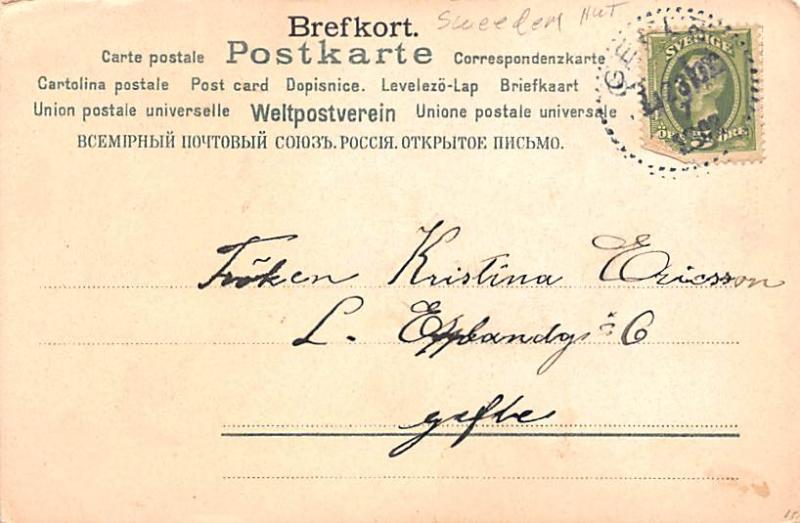 Brefkort.
Sweeden Hut
Carte postale Postkarte Correspondenzkarte
Cartolina postale Post card Dopisnice. Levelező-Lap Briefkaart
Union postale universelle Weltpostverein Unione postale universale
ВСЕМІРНЫЙ ПОЧТОВЫЙ СОЮЗЪ. РОССІЯ. ОТКРЫТОЕ ПИСЬМО.
SVERIGE
ÖRE
Fröken Kristina Ericsson
L. 6
gefle